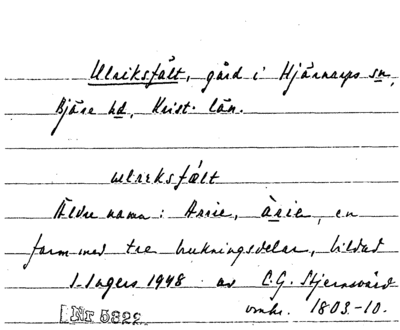 Ulriksfält, gård i Hjärnarps sn,
Bjäre hd, Krist. län.
ulreksfált
Äldre namn: Arrie, àrie, en
farm med tre brukningsdelar, bildad
av C.G. Stjernsvärd
omkr. 1803-10.
Nr 5822